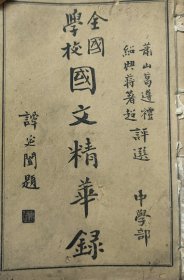 蕭山葛遵禮
紹興蔣著超
評選
中學部
全國
學校
國文精華錄
譚延闓題